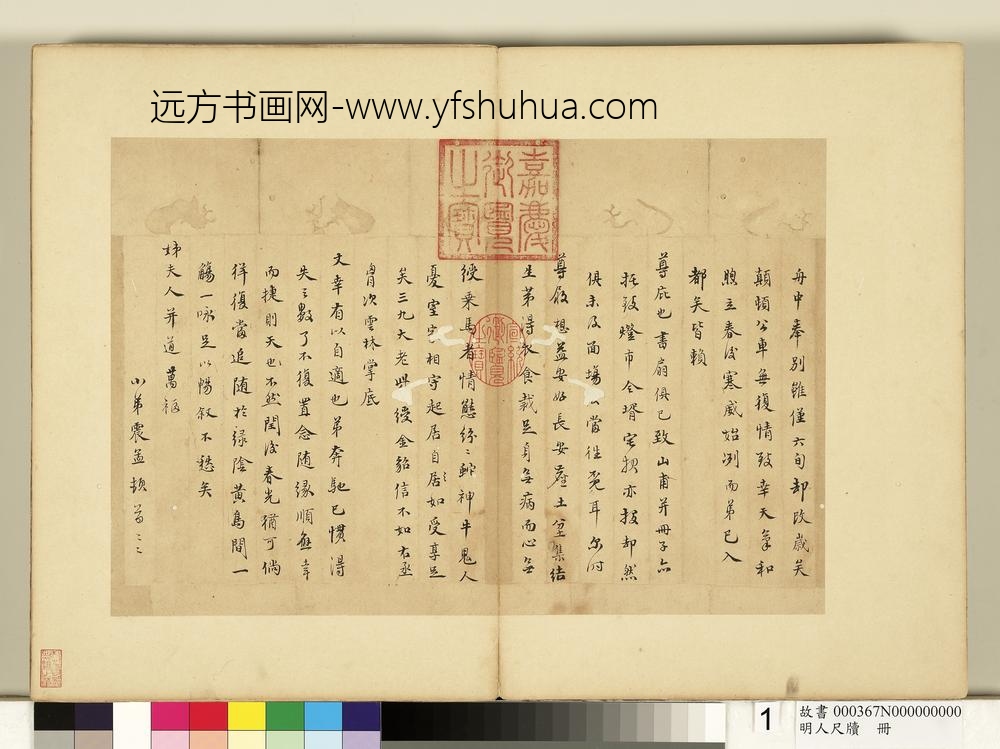 远方书画网-www.yfshuhua.com
嘉慶
御覽
之寶
宣統
御覽
之寶
舟中奉別雖僅六旬却改歲矣
顛頓公車無復情致幸天氣和
煦立春後寒威始冽而弟已入
都矣皆賴
尊庇也書扇俱已致山甫并冊子亦
托致燈市令壻宅報亦投却然
俱未及面場公當往覓耳尔時
尊履想益安好長安塵土坌集結
生弟得衣食栽足身無病而心無
綬乘馬者情態紛紛牛鬼人
憂室家相守起居自如受享足
矣三九大老紫綬金貂信不如右丞
胷次雲林掌底
文幸有以自適也弟奔馳已慣得
失之數了不復置念隨緣順無幸
而捷則天也不然閏後春光猶可倘
徉復當追隨於綠陰黃鳥間一
觴一咏足以暢敘不愁矣
姊夫人并道萬福
小弟震孟頓首
1
故書 000367N000000000
明人尺牘 冊